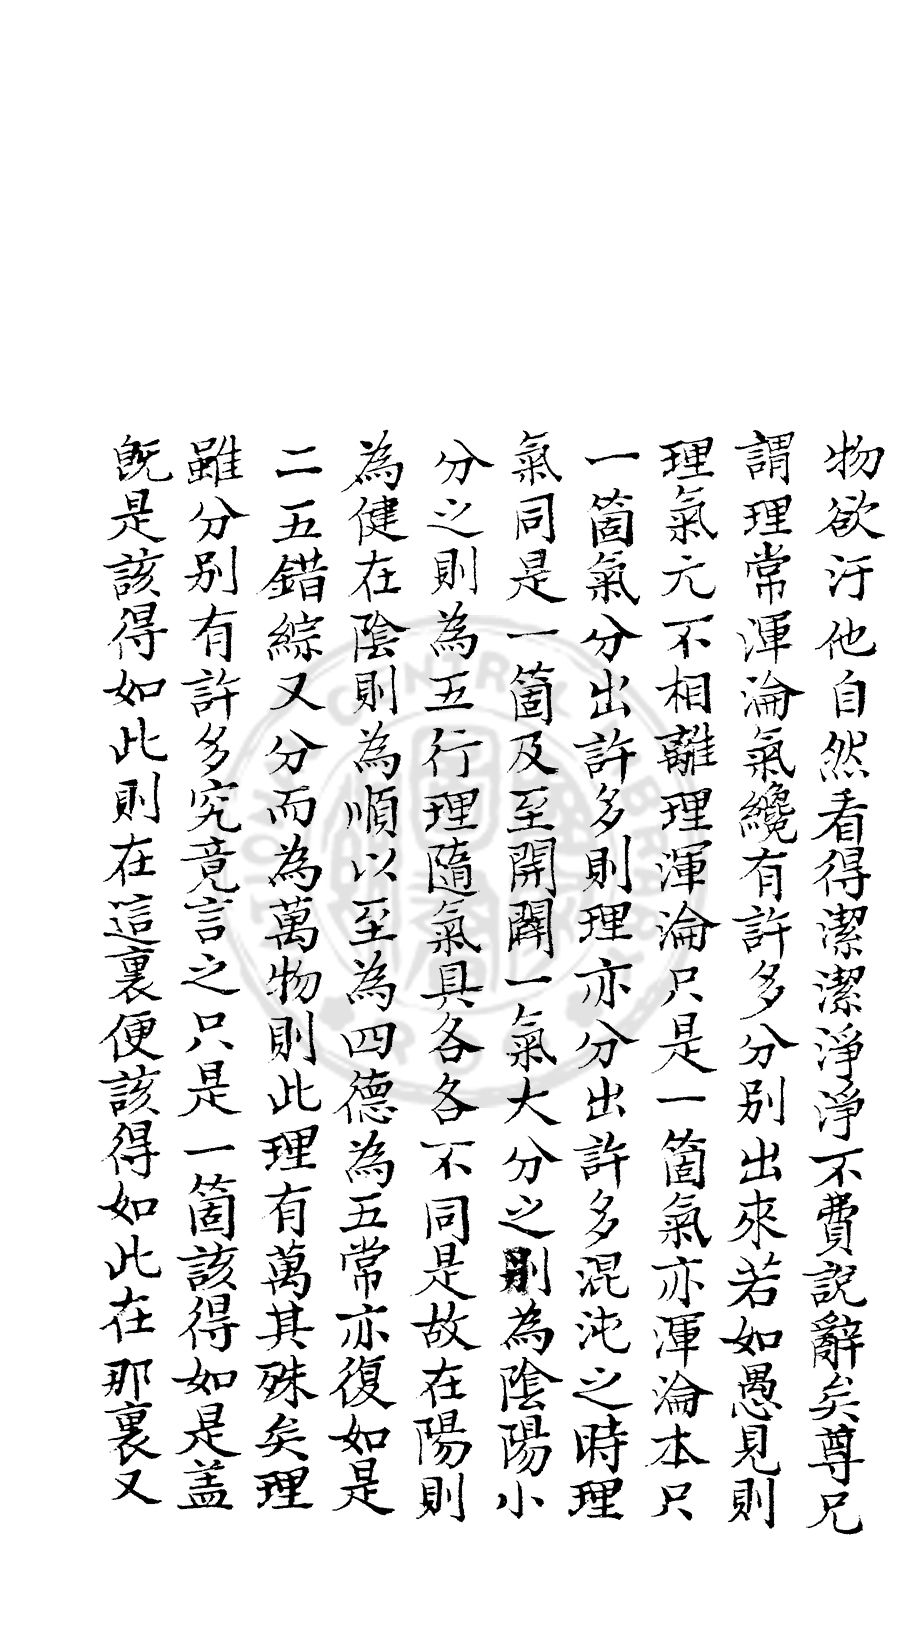 物欲汙他自然看得潔潔淨淨不費説辭矣尊兄
謂理常渾淪氣纔有許多分別出來若如愚見則
理氣元不相離理渾淪只是一箇氣亦渾淪本只
一箇氣分出許多則理亦分出許多混沌之時理
氣同是一箇及至開闢一氣大分之則為陰陽小
分之則為五行理隨氣具各各不同是故在陽則
為健在陰則為順以至為四德為五常亦復如是
二五錯綜又分而為萬物則此理有萬其殊矣理
雖分別有許多究竟言之只是一箇該得如是盖
既是該得如此則在這裏便該得如此在那裏又
CENTRAL